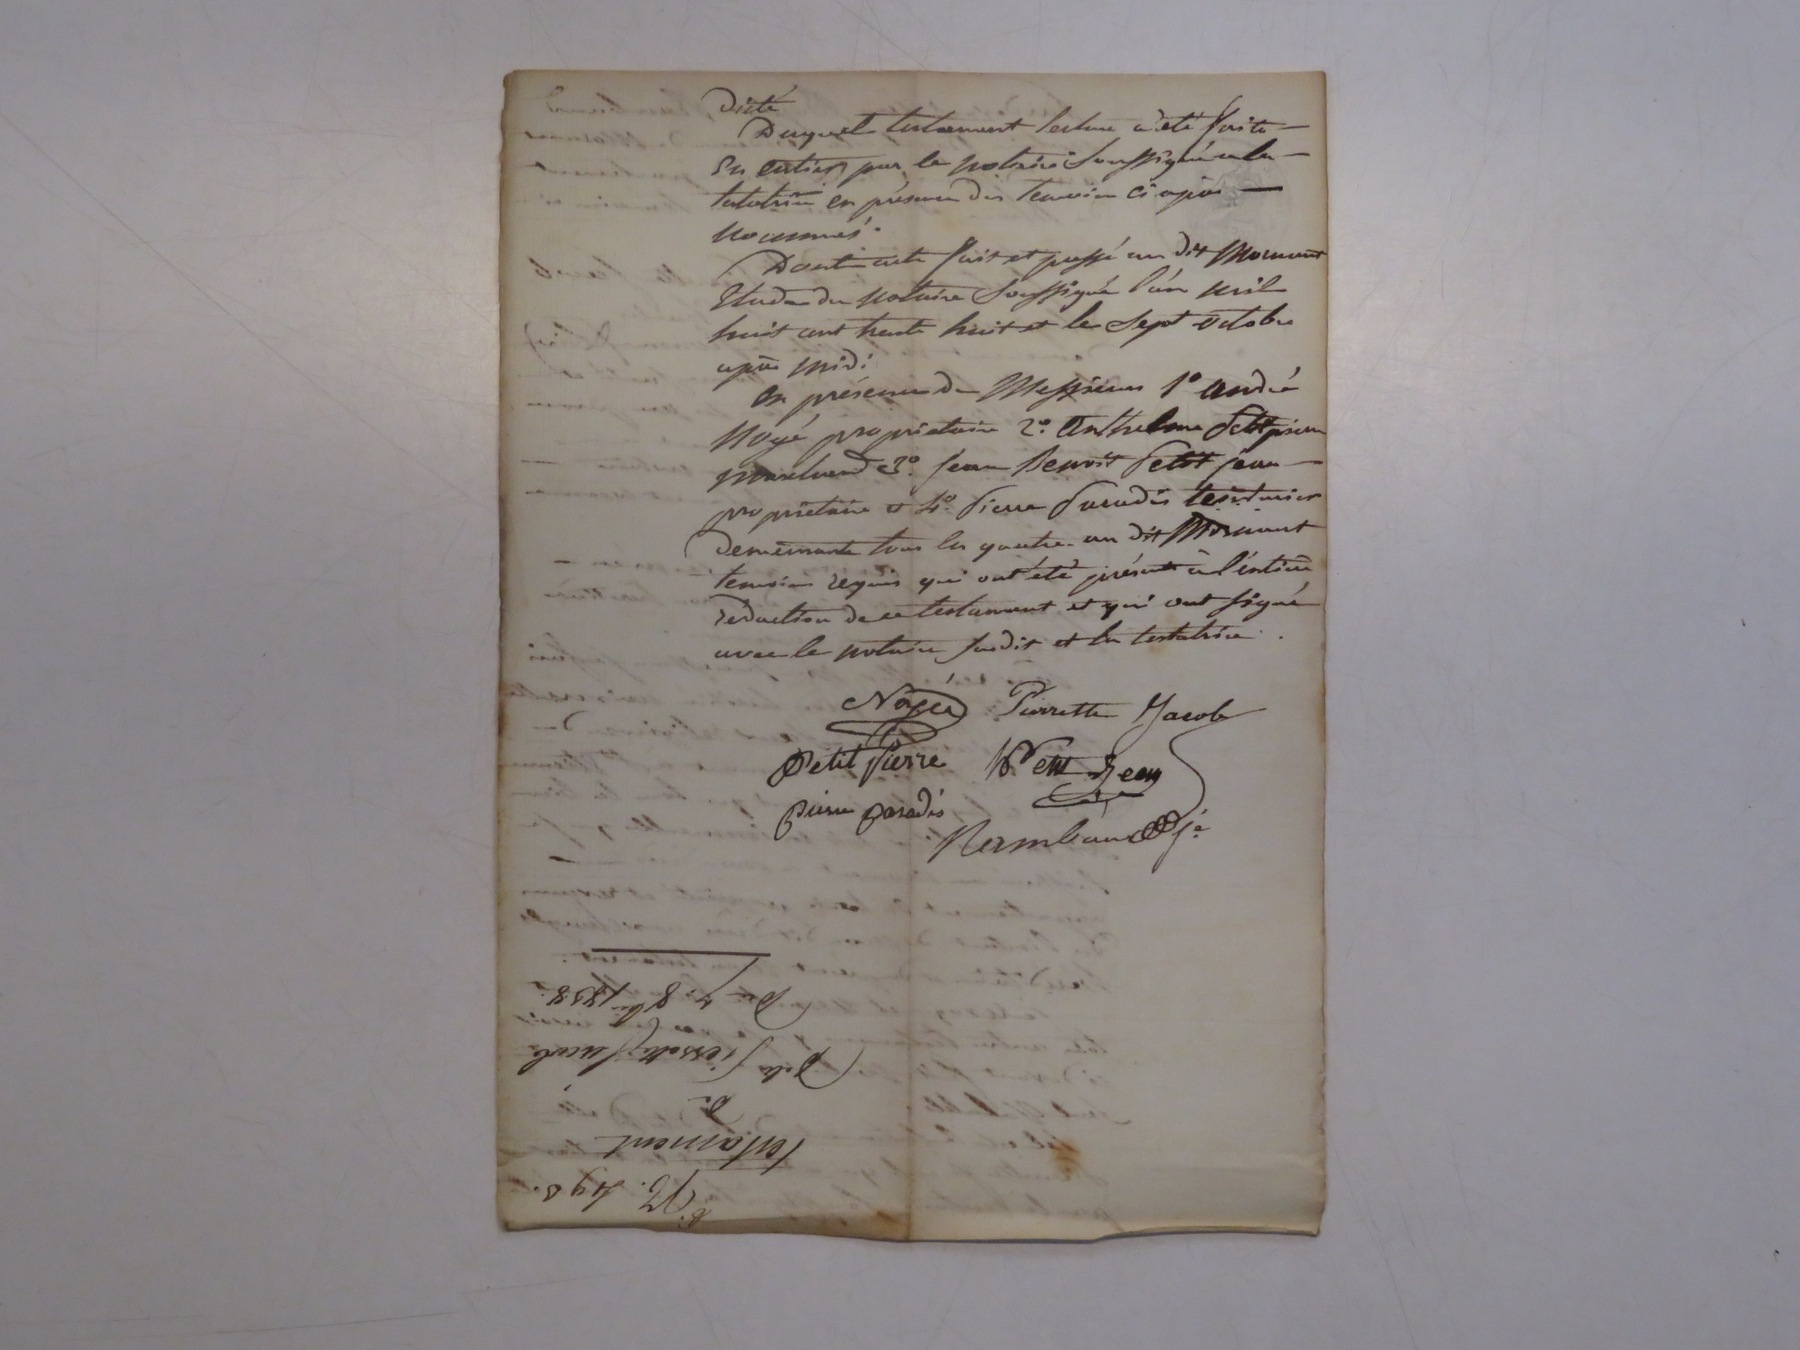 Dicté
Duquel testament lecture a été faite
En entier par le notaire soussigné a la
testatrice en présence des temoins ci après
nommés.
Dont acte fait et passé au dit Mornant
Etude du notaire soussigné l'an mil
huit cent trente huit et le sept octobre
après midi
En présence de Messieurs 1º André
Noyé propriétaire 2º. Anthelme Petitpierre
marchand 3º. Jean Benoît Petit jean
propriétaire et 4º. Pierre Paradis teinturier
demeurants tous les quatre au dit Mornant
temoins requis qui ont été présents à l'entière
rédaction de ce testament et qui ont signé
avec le notaire susdit et la testatrice.
Noyée Pierrette Jacob
Petit Pierre Petit Jean
pierre paradis
Du 7. 8bre 1838.
De la Pierrette Jacob
De
Testament